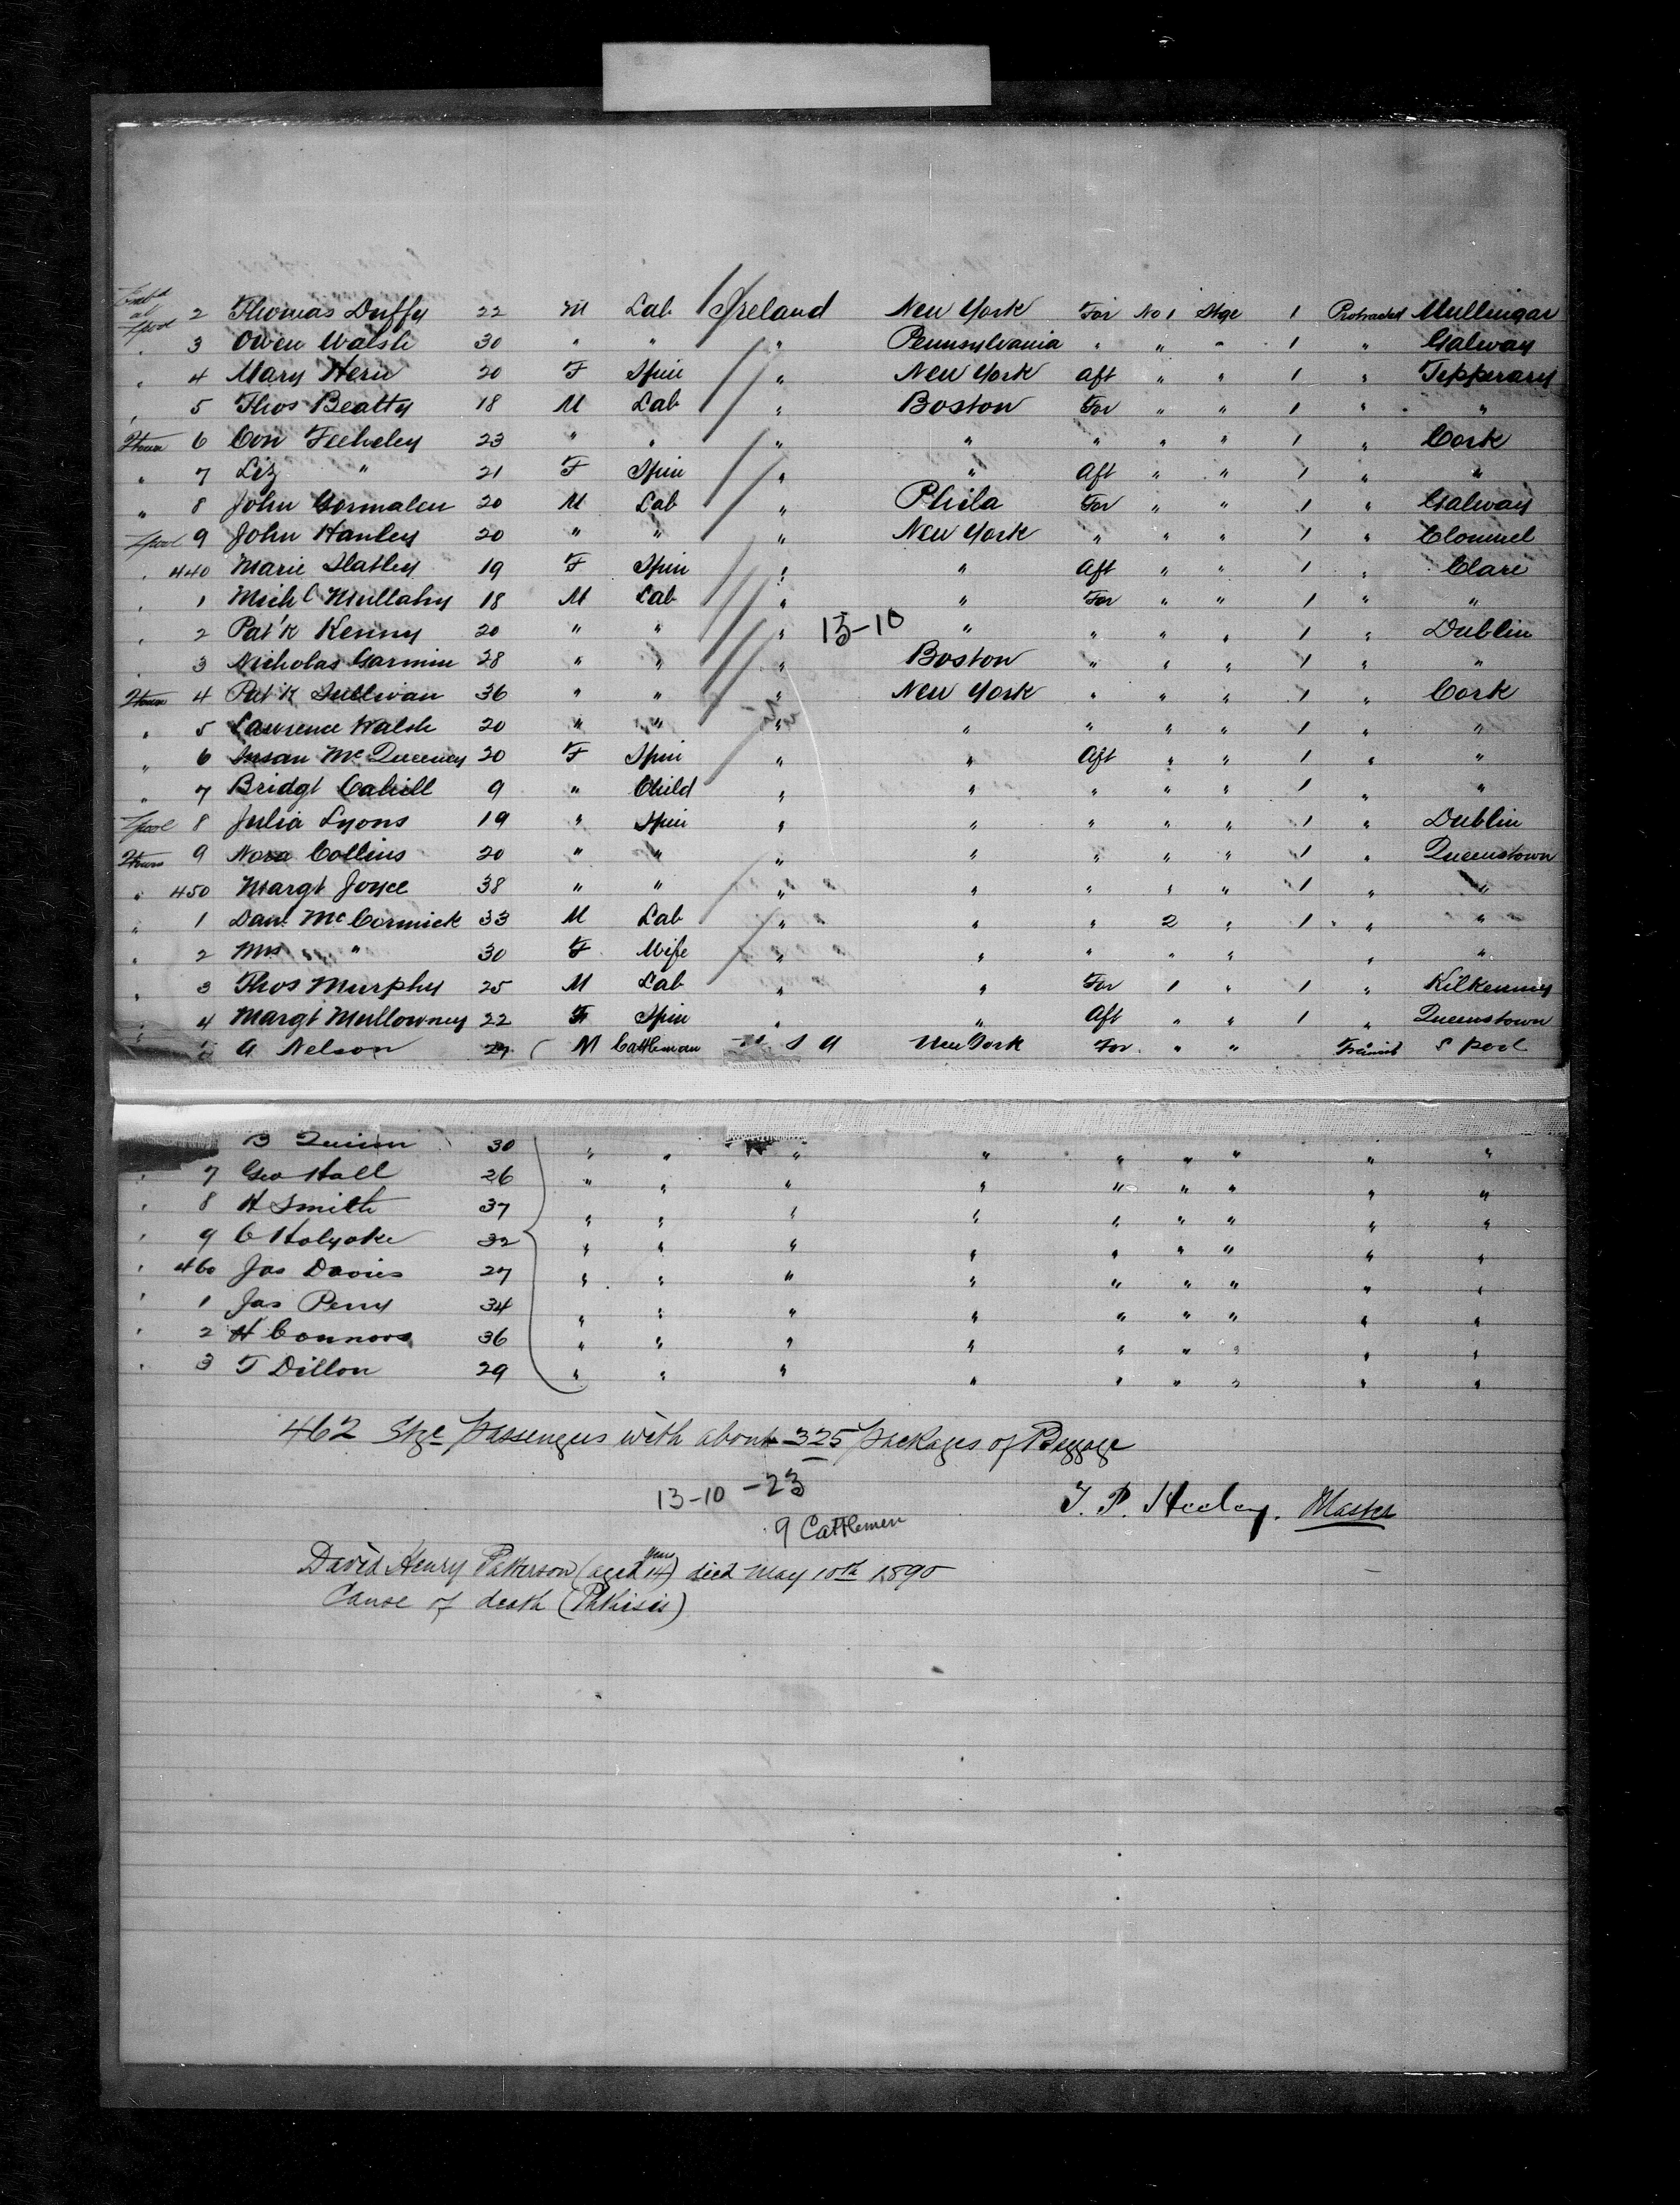 Emb'd at L'pool 2 Thomas Duffy 22 M Lab Ireland New York For No 1 Stge 1 Protracted Mullingar
" 3 Owen Walsh 30 " " " Pennsylvania " " " 1 " Galway
" 4 Mary Hern 20 F Spin " New York Aft " " 1 " Tipperary
" 5 Thos Beatty 18 M Lab " Boston For " " 1 " "
Qtown 6 Con Feeheley 23 " " " " " " " 1 " Cork
" 7 Liz " 21 F Spin " " Aft " " 1 " "
" 8 John Gormalen 20 M Lab " Phila For " " 1 " Galway
L'pool 9 John Hanley 20 " " " New York " " " 1 " Clonmel
" 440 Marie Slatley 19 F Spin " " Aft " " 1 " Clare
" 1 Michl Mullahy 18 M Lab " " For " " 1 " "
" 2 Pat'k Kenny 20 " " " 13-10 " " " " 1 " Dublin
" 3 Nicholas Garmin 28 " " " Boston " " " 1 " "
Qtown 4 Pat'k Sullivan 36 " " " New York " " " 1 " Cork
" 5 Lawrence Walsh 20 " " " " " " " 1 " "
" 6 Susan McQueeney 20 F Spin " " Aft " " 1 " "
" 7 Bridgt Cahill 9 " Child " " " " " 1 " "
L'pool 8 Julia Lyons 19 " Spin " " " " " 1 " Dublin
Qtown 9 Nora Collins 20 " " " " " " " 1 " Queenstown
" 450 Margt Joyce 38 " " " " " " " 1 " "
" 1 Danl McCormick 33 M Lab " " " 2 " 1 " "
" 2 Mrs " 30 F Wife " " " " " " "
" 3 Thos Murphy 25 M Lab " " For 1 " 1 " Kilkenny
" 4 Margt Mullowney 22 F Spin " " Aft " " 1 " Queenstown
" 5 A Nelson 29 M Cattleman U S A New York For " " Transit L'pool
B Quinn 30 " " " " " " " " "
" 7 Geo Hall 26 " " " " " " " " "
" 8 H Smith 37 " " " " " " " " "
" 9 C Holyoke 32 " " " " " " " " "
" 460 Jas Davies 27 " " " " " " " " "
" 1 Jas Perry 34 " " " " " " " " "
" 2 H Connors 36 " " " " " " " " "
" 3 T Dillon 29 " " " " " " " " "
462 Stge passengers with about 325 packages of Baggage
13-10 -23
T. P. Heeley. Master
9 Cattlemen
David Henry Patterson (aged 14 years) died May 10th 1890
Cause of death (Phthisis)